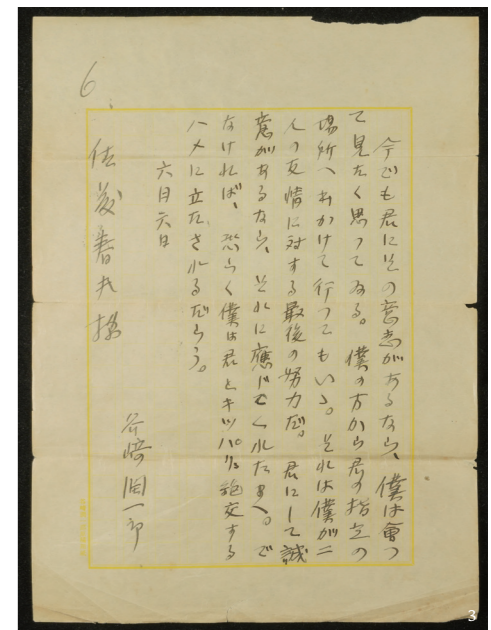 6
今でも君にその意志があるなら、僕は會つ
て見たく思つてゐる。僕の方から君の指定の
場所へ出かけて行つてもいゝ。それは僕が二
人の友情に対する最後の努力だ。君にして誠
意があるなら、それに應じてくれたまへ。で
なければ、恐らく僕は君とキッパリ絶交する
ハメに立たされるだらう。
六月六日
谷崎潤一郎
佐藤春夫様
3